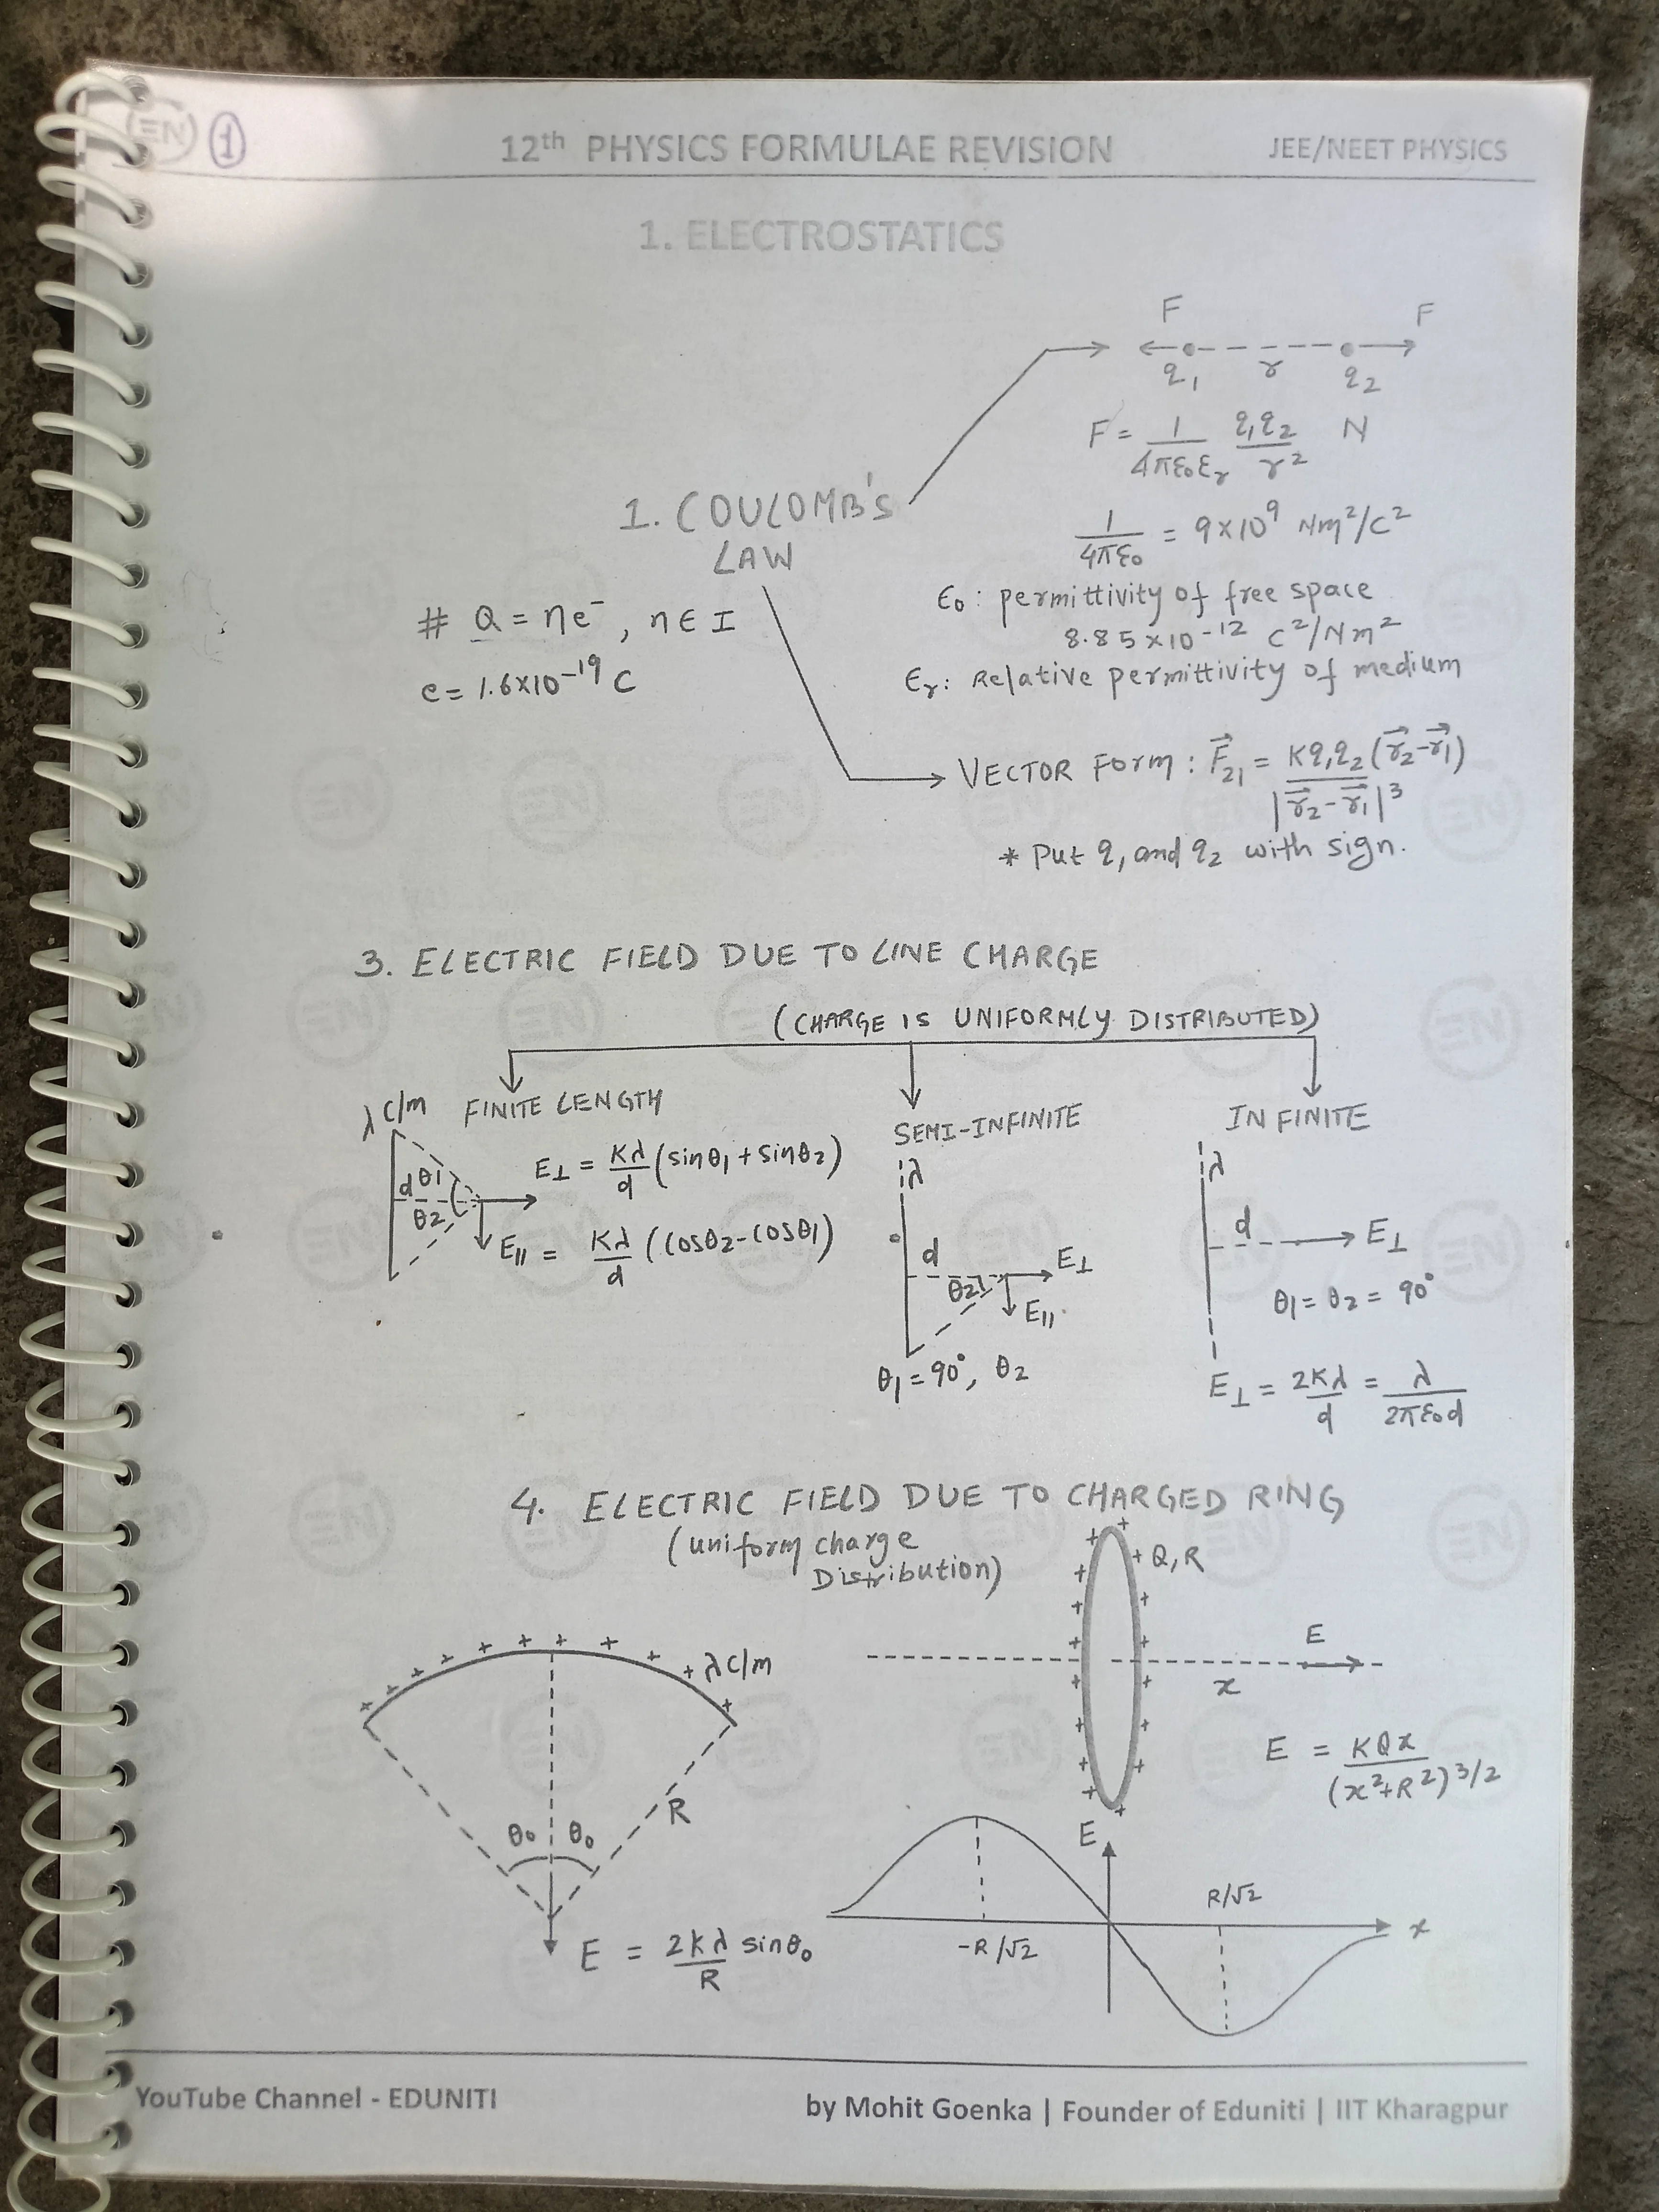 EN 1
12th PHYSICS FORMULAE REVISION
JEE/NEET PHYSICS
1. ELECTROSTATICS
F F
q₁ r q₂
F = 1/4πε₀εᵣ q₁q₂/r² N
1. COULOMB'S
LAW
1/4πε₀ = 9×10⁹ Nm²/C²
ε₀: permittivity of free space
8.85×10⁻¹² C²/Nm²
εᵣ: Relative permittivity of medium
# Q = ne⁻, n∈I
e = 1.6×10⁻¹⁹ C
VECTOR Form: F⃗₂₁ = Kq₁q₂(r⃗₂-r⃗₁)/|r⃗₂-r⃗₁|³
* Put q₁ and q₂ with sign.
3. ELECTRIC FIELD DUE TO LINE CHARGE
(CHARGE IS UNIFORMLY DISTRIBUTED)
λ C/m FINITE LENGTH
d θ1
θ2
E⊥ = Kλ/d (sinθ₁+sinθ₂)
E∥ = Kλ/d (cosθ₂-cosθ₁)
SEMI-INFINITE
λ
d E⊥
θ2
E∥
θ₁ = 90°, θ₂
INFINITE
λ
d E⊥
θ₁ = θ₂ = 90°
E⊥ = 2Kλ/d = λ/2πε₀d
4. ELECTRIC FIELD DUE TO CHARGED RING
(uniform charge
Distribution)
+ + + + + + + + + + λ C/m
R
θ₀ θ₀
E = 2Kλ/R sinθ₀
Q, R
E
x
E = KQx/(x²+R²)^3/2
E
R/√2
-R/√2
x
YouTube Channel - EDUNITI
by Mohit Goenka | Founder of Eduniti | IIT Kharagpur